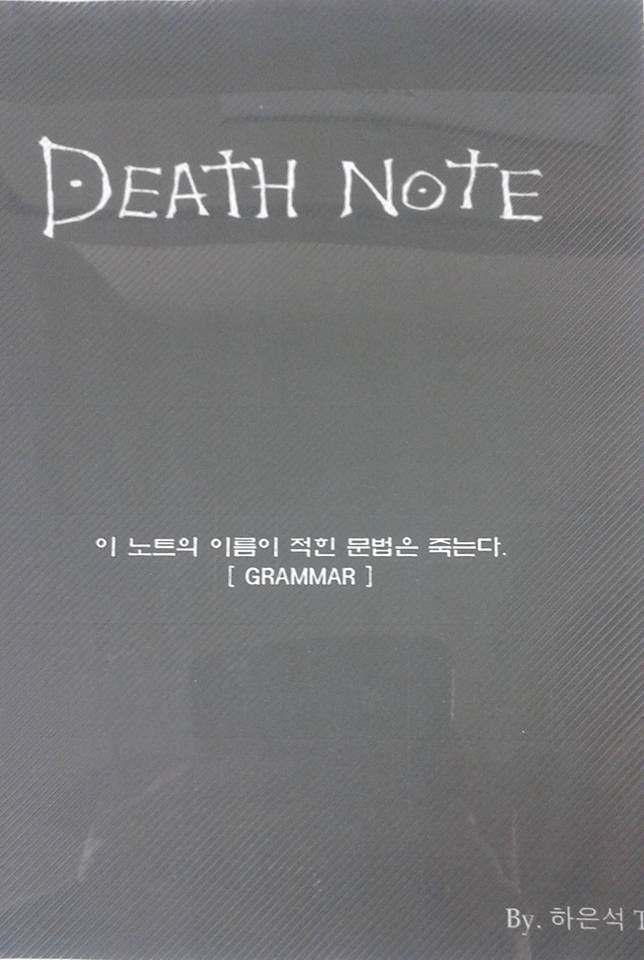 DEATH NOTE
이 노트의 이름이 적힌 문법은 죽는다.
[ GRAMMAR ]
By. 하은석 T